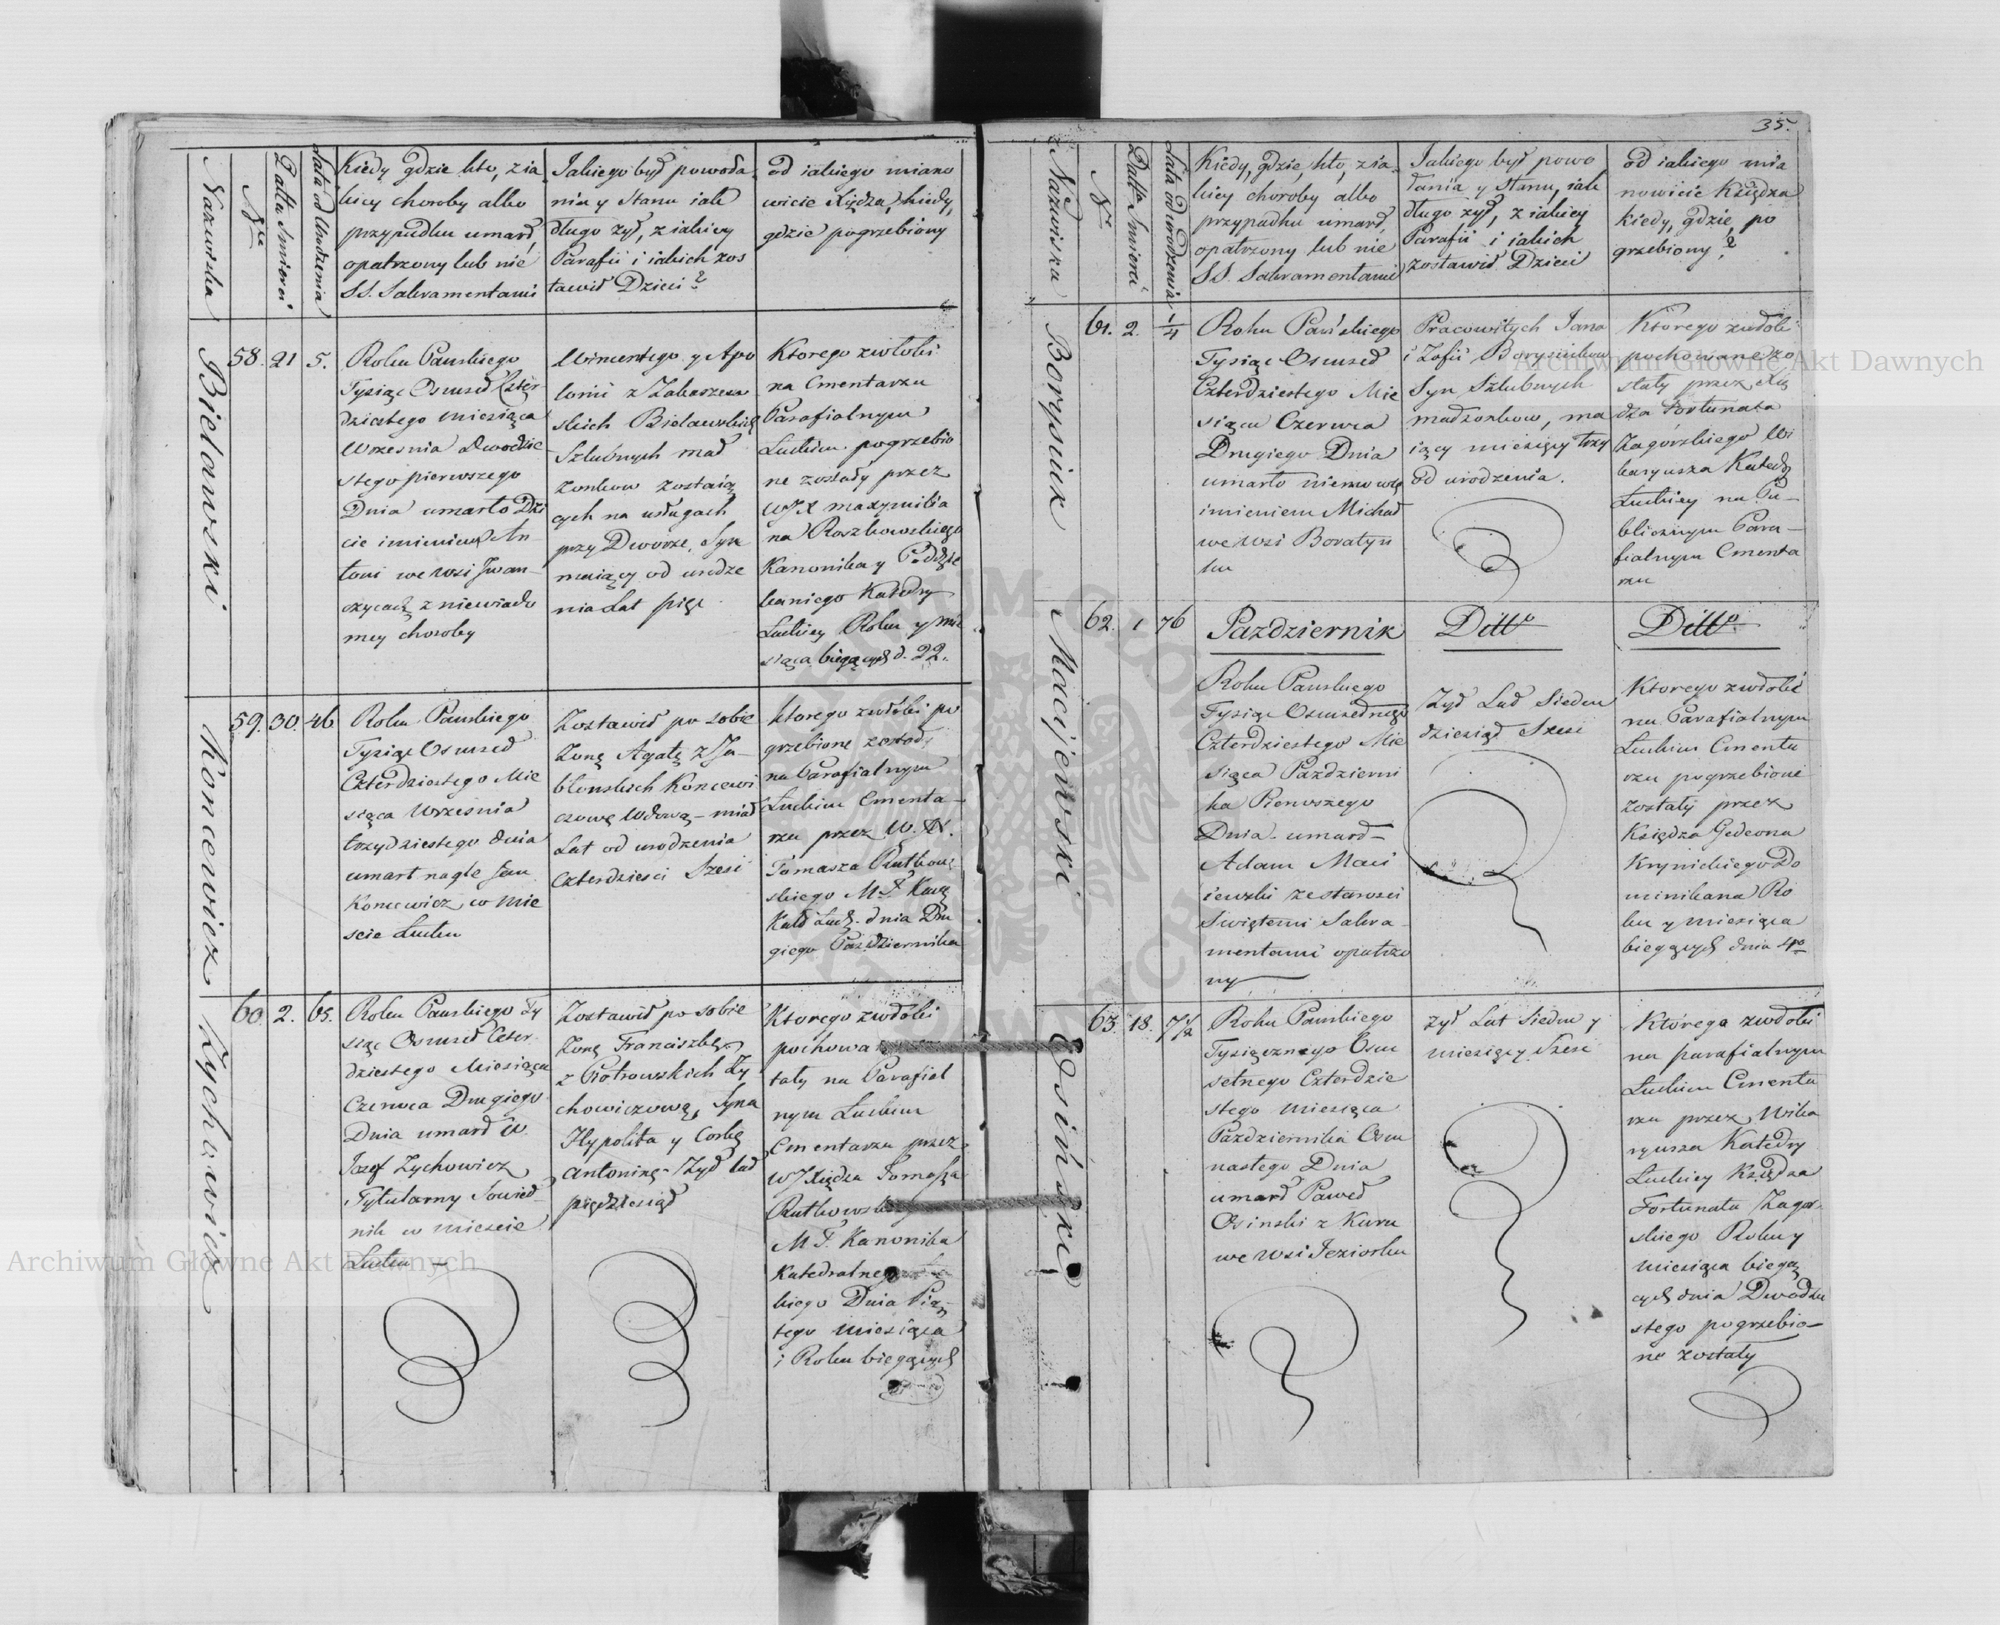 35.
Nazwiska
Nru
Datta Smierci
Lata od Urodzenia
Kiedy gdzie kto, z ia
kiey choroby albo
przypadku umarł,
opatrzony lub nie
SS. Sakramentami
Jakiego był powoła
nia y Stanu iak
długo żył, z iakiey
Parafii i iakich zos
tawił Dzieci?
od iakiego miano
wicie Xiędza, kiedy,
gdzie pogrzebiony
Bielawski
58. 21 5.
Roku Panskiego
Tysiąc Osmset Czter
dziestego miesiąca
Wrzesnia dwudzie
stego pierwszego
Dnia umarło Dzi
cie imieniem An
toni we Wsi Jwan-
czycach z niewiado
mey choroby
Wincentego y Apo
lonii z Zaborzew
skich Bielawskich
Szlubnych mał
zonkow zostaią
cych na usługach
przy Dworze, Syn
maiący od urodze
nia Lat pięć
Ktorego zwłoki
na Cmentarzu
Parafialnym
Luckim pogrzebio
ne zostały przez
WJX maxymilia
na Roszkowskiego
Kanonika y Podkus
Kated
Luckiey Roku y mie
siąca biegących d. 22.
Koncewicz
59. 30. 46
Roku Panskiego
Tysiąc Osmset
Czterdziestego Mie
siąca Wrzesnia
trzydziestego dnia
umarł nagle Jan
Koncewicz w Mie
scie Lucku
Zostawił po sobie
Zonę Agatę z Ja-
błonskich Koncewi
czowę Wdowę – miał
Lat od urodzenia
Czterdziesci Szesć
ktorego zwłoki po
grzebione zostały
na Parafialnym
Luckim Cmenta-
rzu przez W. X.
Tomasza Rutkow
skiego M. F. Kan
Kated Luck. dnia Dru
giego Pazdziernika
Zychowicz
60. 2. 65.
Roku Panskiego Ty
siąc Osmset Czter
dziestego Miesiąca
Czerwca Drugiego
Dnia umarł W.
Jozef Zychowicz
Tytularny Sowiet-
nik w miescie
Lucku
Zostawił po sobie
Zonę Franciszkę
z Piotrowskich Zy
chowiczową, Syna
Hypolita y Corkę
Antoninę – Zył lat
pięćdziesiąt
Ktorego zwłoki
pochowa
tały na Parafial
nym Luckim
Cmentarzu przez
WJ Xiędza Tomasza
Rutkowskiego
M. F. Kanonika
Katedralnego
kiego Dnia Pią
tego miesiąca
i Roku biegących
z Nazwiska
Nr
Datta Smierci
Lata od urodzenia
Kiedy, gdzie, kto, z ia-
kiey choroby albo
przypadku umarł,
opatrzony lub nie
SS. Sakramentami
Jakiego był powo
łania y Stanu, iak
długo żył, z iakiey
Parafii i iakich
zostawił Dzieci
od iakiego mia
nowicie Księdza
kiedy, gdzie, po
grzebiony?
Borysiuk
61. 2. 1/4
Roku Pańskiego
Tysiąc Osmset
Czterdziestego Mie
siąca Czerwca
Drugiego Dnia
umarło niemowlę
imieniem Michał
we Wsi Boratyn
ku
Pracowitych Jana
i Zofii Borysiukow
Syn Szlubnych
małzonkow, ma
iący miesięcy trzy
od urodzenia.
Ktorego zwłoki
pochowane zo
stały przez Xię
dza Fortunata
Zagórskiego Wi
karyusza Katedry
Luckiey na Pu-
blicznym Para-
fialnym Cmenta
rzu
Maciejewski
62. 1 76
Pazdziernik
Ditto
Ditto
Roku Panskiego
Tysiąc Osmsetnego
Czterdziestego Mie
siąca Pazdzierni
ka Pierwszego
Dnia umarł
Adam Maci
iewski ze starosci
Swiętemi Sakra-
mentami opatrzo
ny
Zył Lat Siedm
dziesiąt Szesć
Ktorego zwłoki
na Parafialnym
Luckim Cmenta
rzu pogrzebione
zostały przez
Księdza Gedeona
Krynickiego Do
minikana Ro
ku y miesiąca
biegących dnia 4go
Osiński
63. 18. 7 1/2
Roku Panskiego
Tysiącznego Osm
setnego Czterdzie
stego miesiąca
Pazdziernika Osm
nastego Dnia
umarł Paweł
Osinski z Kuru
we Wsi Jeziorku
Zył Lat Siedm y
miesięcy Szesć
Którego zwłoki
na parafialnym
Luckim Cmenta
rzu przez Wika
ryusza Katedry
Luckiey Księdza
Fortunata Zagor
skiego Roku y
miesiąca biegą
cych dnia Dwudzie
stego pogrzebio-
ne zostały
Archiwum Główne Akt Dawnych
Archiwum Główne Akt Dawnych